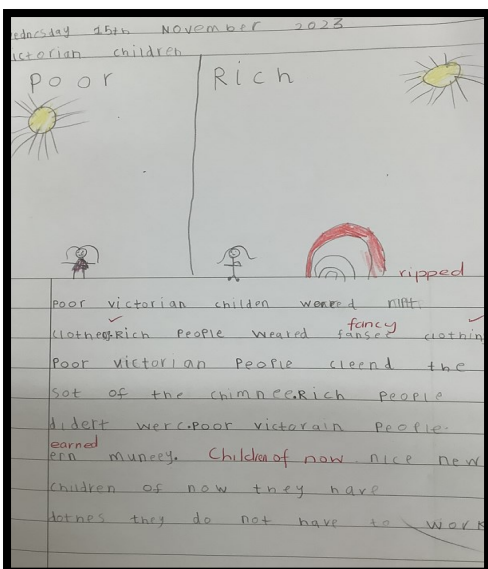 ednesday 15th November 2023
ictorian children
Poor Rich
ripped
Poor victorian childen weared
clothes.Rich People weared fansee clothin
fancy
Poor victorian People cleend the
sot of the chimnee.Rich people
didert werc.poor victorain people.
earned
ern muneey. Children of now nice new
children of now they have
clothes they do not have to work